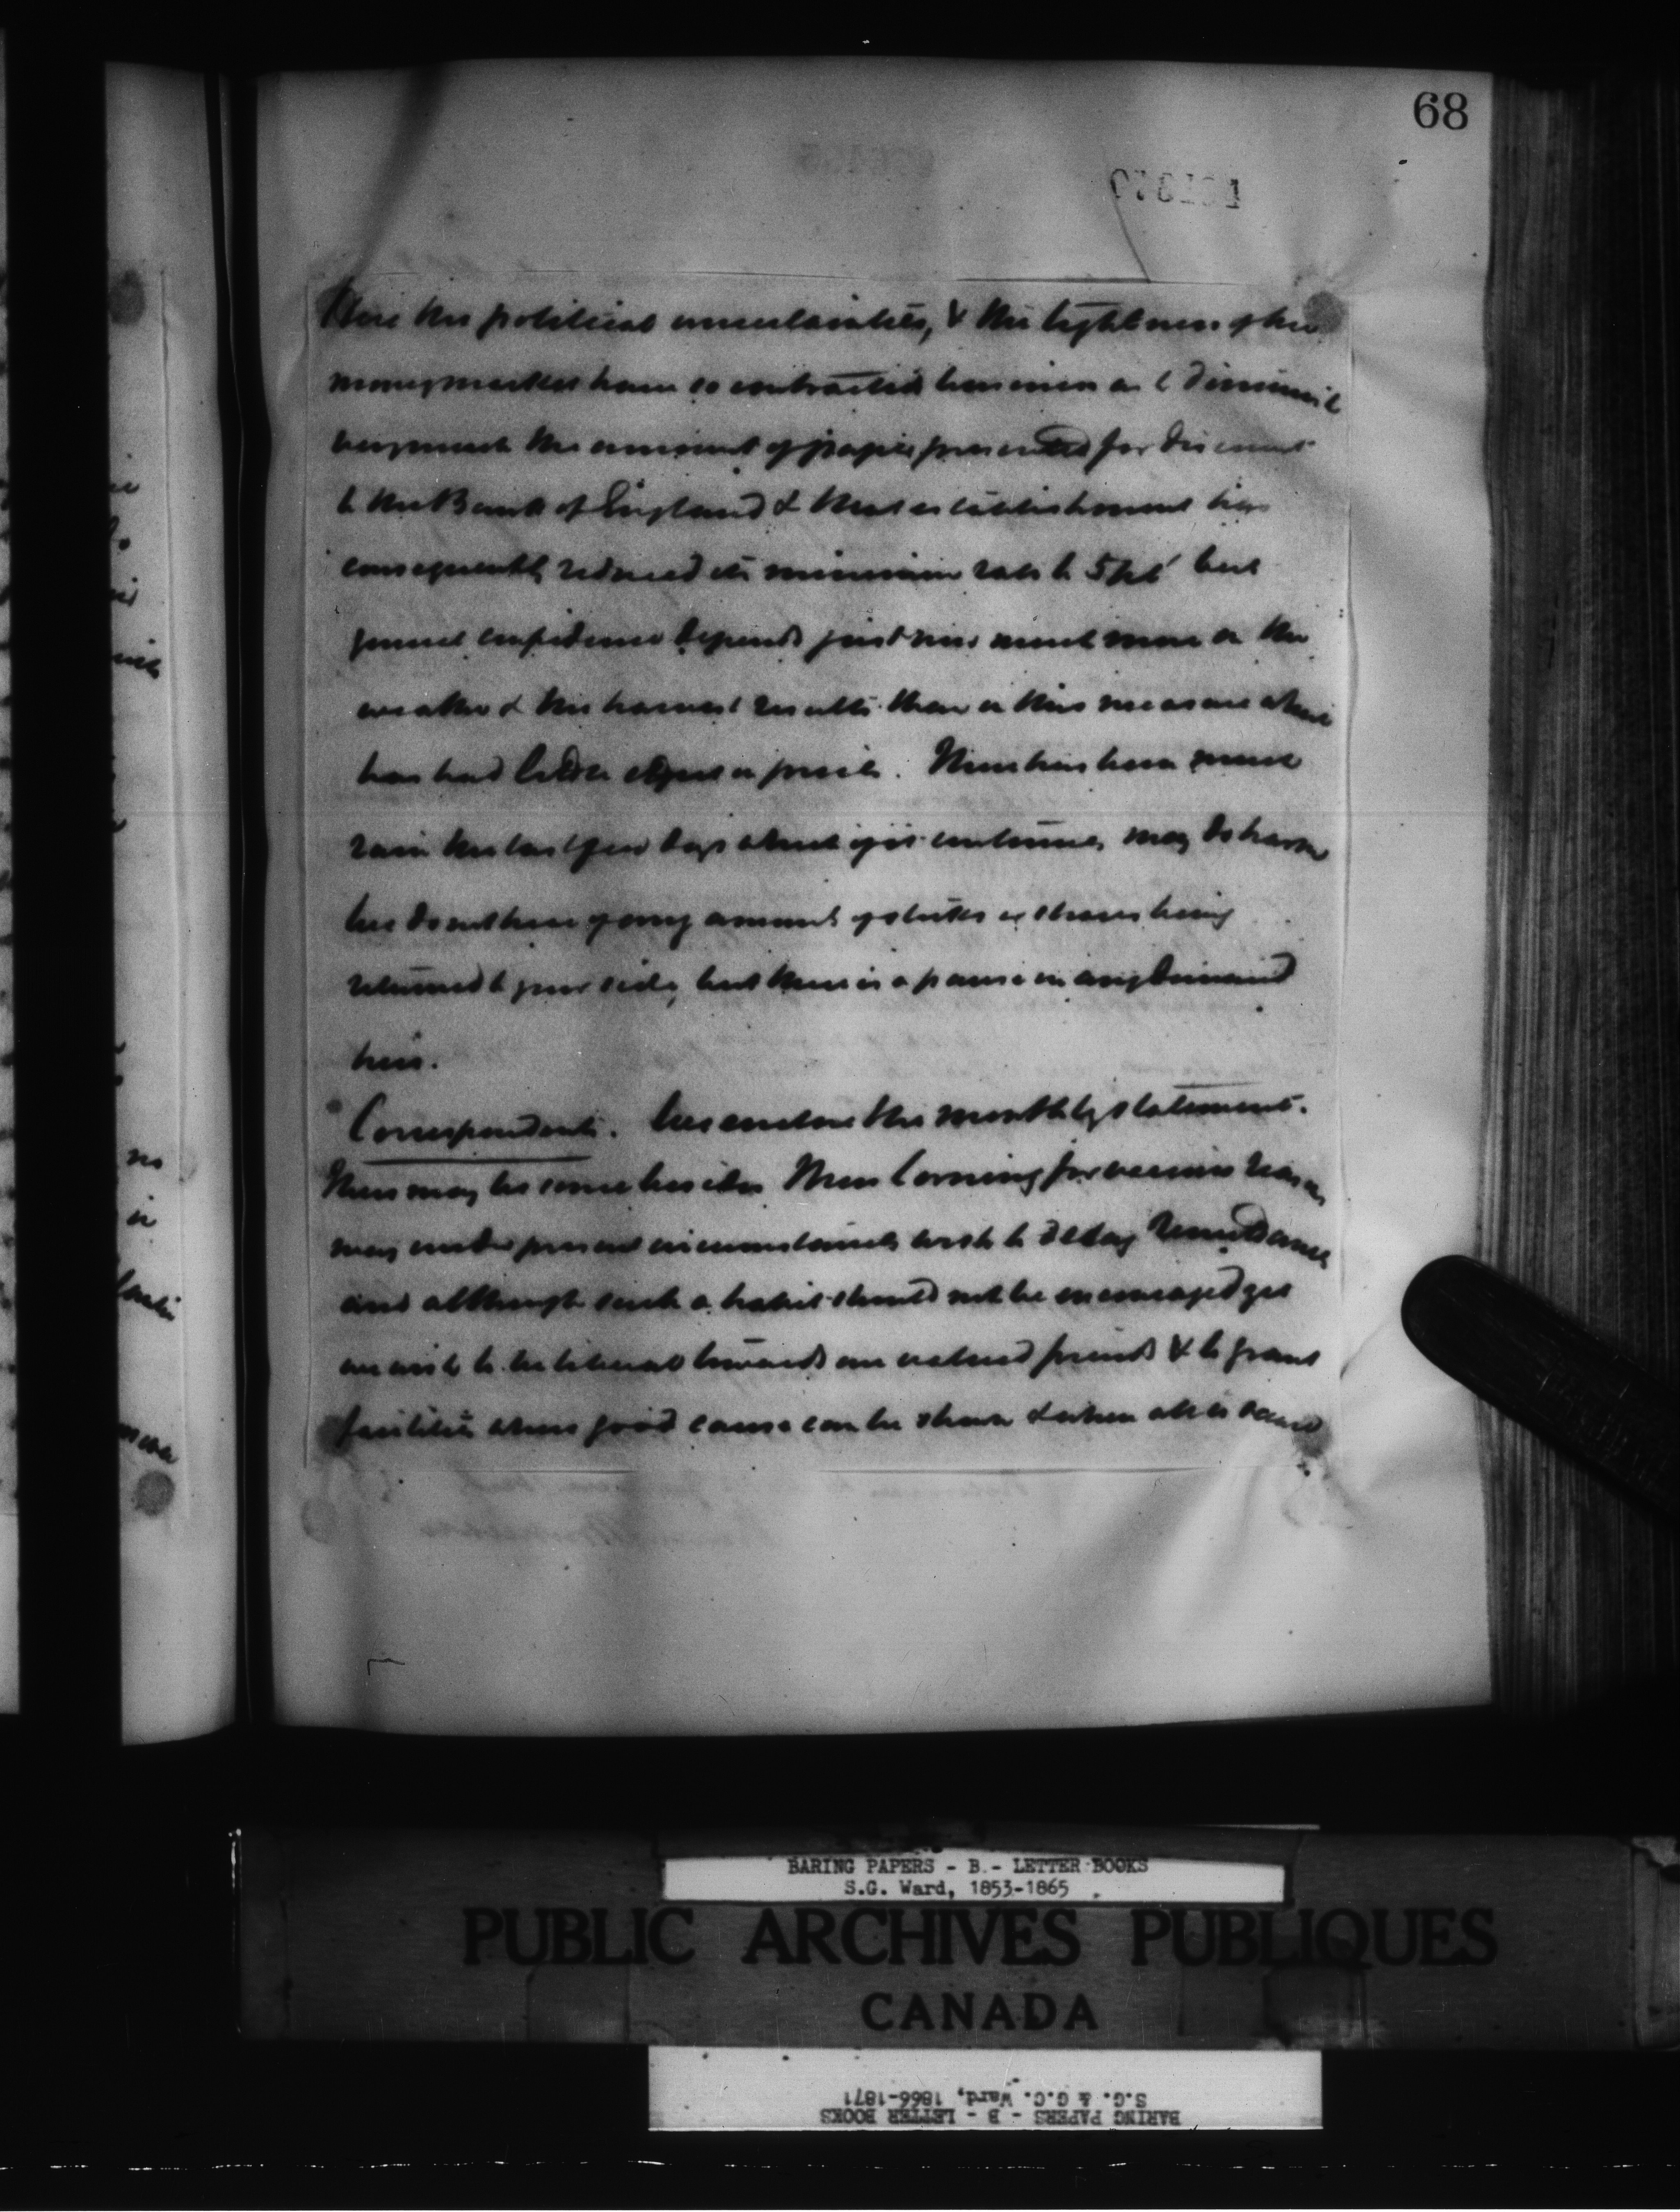 68
Here the political uncertainties, & the tightness of the
money market have so contracted business as to diminish
very much the amount of paper presented for discount
to the Bank of England & that establishment has
consequently reduced its minimum rate to 5 pct but
general confidence depends just now much more on the
weather & the harvest results than on this measure which
has had little effect on prices. There has been much
rain the last few days which if it continues may do harm
We do not hear of any amount of stocks or shares being
returned to your side, but there is a pause in any demand
here.
Correspondents. We enclose the monthly statement.
There may be some besides Corning for various reasons
may under present circumstances wish to delay remittances
and although such a habit should not be encouraged yet
we wish to be liberal towards our valued friends & to grant
facilities where good cause can be shown & when all is sound
BARING PAPERS - B - LETTER BOOKS
S.G. Ward, 1853-1865
PUBLIC ARCHIVES PUBLIQUES
CANADA
BARING PAPERS - B - LETTER BOOKS
S.G. & G.C. Ward, 1866-1871